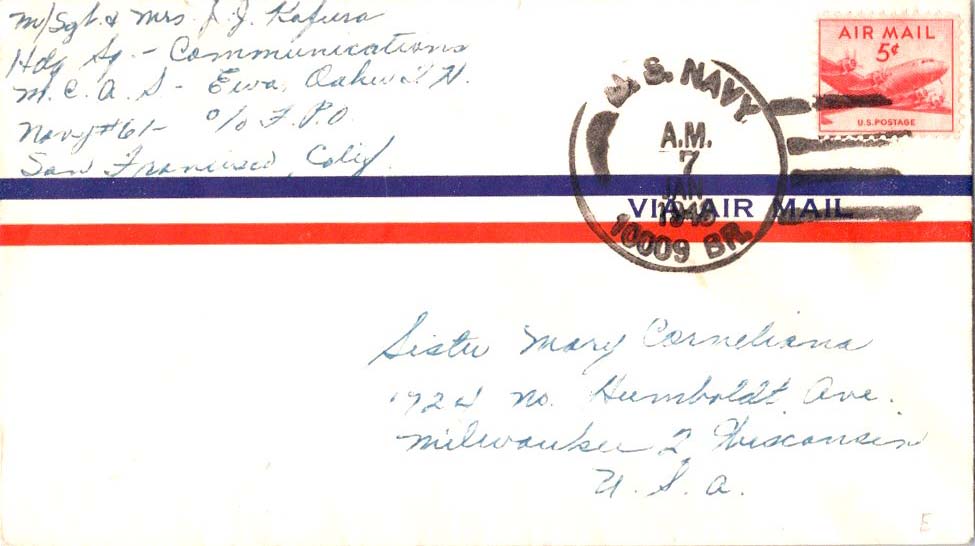 M/Sgt. & Mrs J. J. Kafura
Hdq Sq. - Communications
M. C. A. S - Ewa, Oahu T. H.
Navy #61 - c/o F. P. O.
San Francisco, Calif.
AIR MAIL
5¢
U.S. POSTAGE
U. S. NAVY
A.M.
7
JAN
10009 BR.
VIA AIR MAIL
Sister Mary Corneliana
No. Humboldt Ave.
Milwaukee 2 Wisconsin
U. S. A.
E